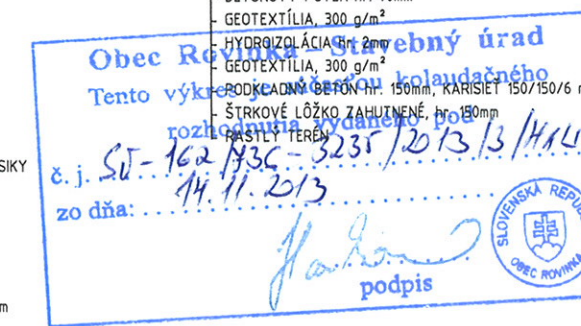 GEOTEXTÍLIA, 300 g/m²
HYDROIZOLÁCIA hr. 2mm
GEOTEXTÍLIA, 300 g/m²
PODKLADNÝ BETÓN hr. 150mm, KARISIEŤ 150/150/6
ŠTRKOVÉ LÔŽKO ZAHUTNENÉ, hr. 150mm
RASTLÝ TERÉN
Obec Rovinka – Stavebný úrad
Tento výkres je súčasťou kolaudačného
rozhodnutia vydaného pod
č. j. SÚ-162/736-3235/2013/3/
zo dňa: 14.11.2013
podpis
SLOVENSKÁ
OBEC ROVINKA
SIKY
m